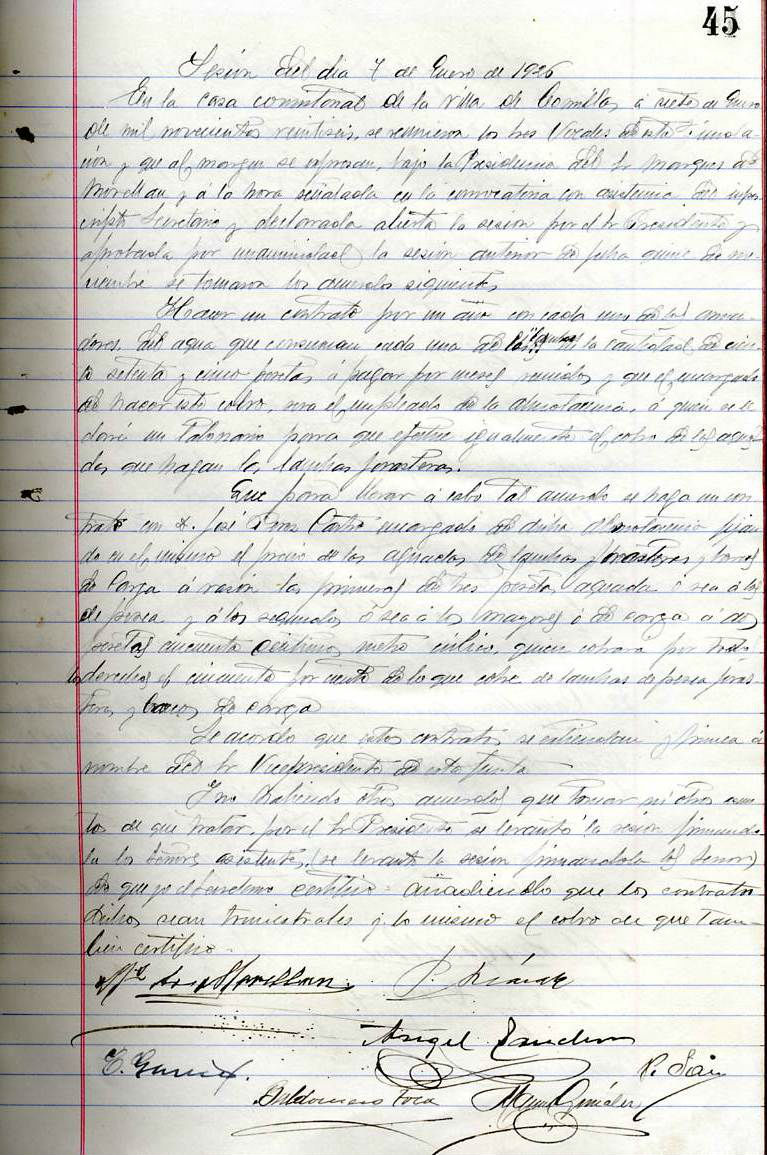 45
Sesión del dia 7 de Enero de 1926
En la casa consistorial de la villa de Comillas á siete de Enero
de mil novecientos veintiseis, se reunieron los tres Vocales de esta
y que al margen se expresan, bajo la Presidencia del Sr Marques de
Movellan y á la hora señalada en la convocatoria con asistencia del infras-
cripto Secretario y declarada abierta la sesión por el Sr Presidente y
aprobada por unanimidad la sesión anterior de fecha quince de
se tomaron los acuerdos siguientes
Hacer un contrato por un año con cada uno de los arma-
dores del agua que consuman cada una de las lanchas la cantidad de cien-
to setenta y cinco pesetas á pagar por meses vencidos y que el encargado
de hacer este cobro, sera el empleado de la á quien se le
dará un Talonario para que efectue igualmente el cobro de las agua-
das que hagan las lanchas forasteras.
Que para llevar á cabo tal acuerdo se haga un con-
trato con D. Jose encargado de dicha fijan-
do en el mismo el precio de las aguadas de lanchas forasteras y barcos
de carga á razón las primeras de tres pesetas aguada ó sea á las
de pesca y á los segundos ó sea á los mayores ó de carga á dos
pesetas cincuenta centimos metro cúbico, quien cobrara por todos
los derechos el cincuenta por ciento de lo que cobre de lanchas de pesca foras-
teras y barcos de carga
Se acordo que estos contratos se estiendan y firmen á
nombre del Sr Vicepresidente de esta Junta
Y no habiendo otros acuerdos que tomar ni otros asun-
tos de que tratar, por el Sr Presidente se levantó la sesión firmando-
la los Señores asistentes, (se levantó la sesión firmandola los Señores)
de que yo el Secretario certifico = añadiendo que los contratos
dichos sean trimestrales y lo mismo el cobro de que tam-
bien certifico.
Movellan P.
Angel Sanchez
E. Garcia P.
Baldomero Toca Manuel González